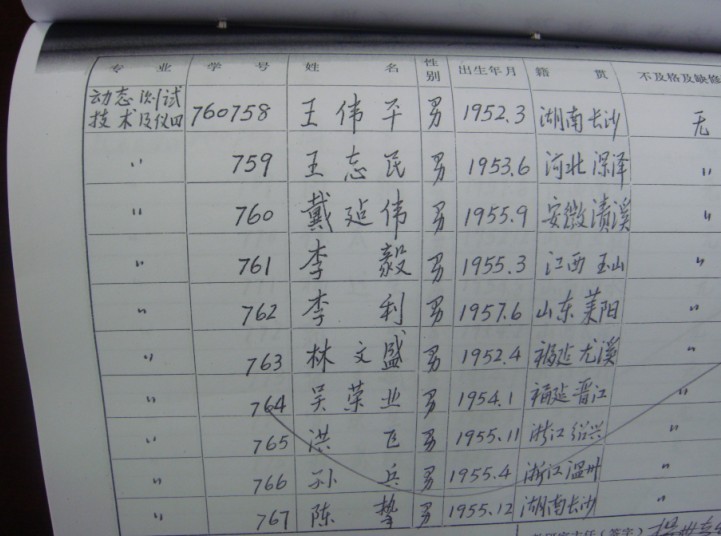 专 业 学 号 姓 名 性别 出生年月 籍 贯 不及格及缺修
动态测试技术及仪四 760758 王伟平 男 1952.3 湖南长沙 无
〃 759 王志民 男 1953.6 河北深泽 〃
〃 760 戴延伟 男 1955.9 安徽绩溪 〃
〃 761 李毅 男 1955.3 江西玉山 〃
〃 762 李利 男 1957.6 山东莱阳 〃
〃 763 林文盛 男 1952.4 福建尤溪 〃
〃 764 吴荣业 男 1954.1 福建晋江 〃
〃 765 洪飞 男 1955.11 浙江绍兴 〃
〃 766 孙兵 男 1955.4 浙江温州 〃
〃 767 陈挚 男 1955.12 湖南长沙 〃
主任(签字)